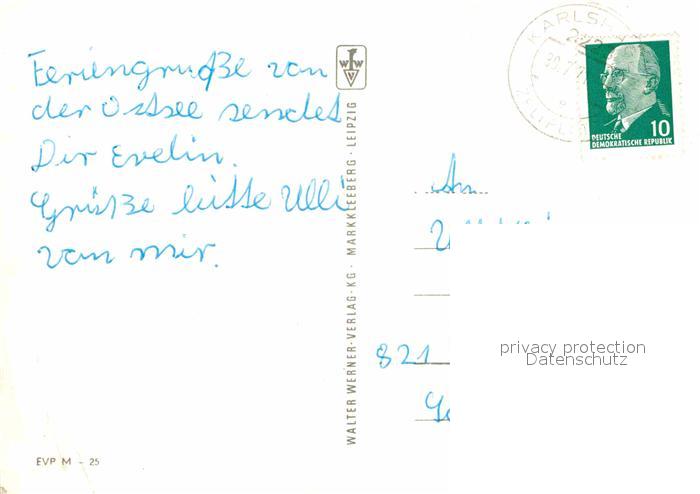 Feriengruße von
der Ostsee sendet
Dir Evelin.
Grüße bitte Ulli
von mir.
WALTER WERNER-VERLAG-KG · MARKKLEEBERG-LEIPZIG
EVP M - 25
DEUTSCHE
DEMOKRATISCHE REPUBLIK
10
An
821
privacy protection
Datenschutz